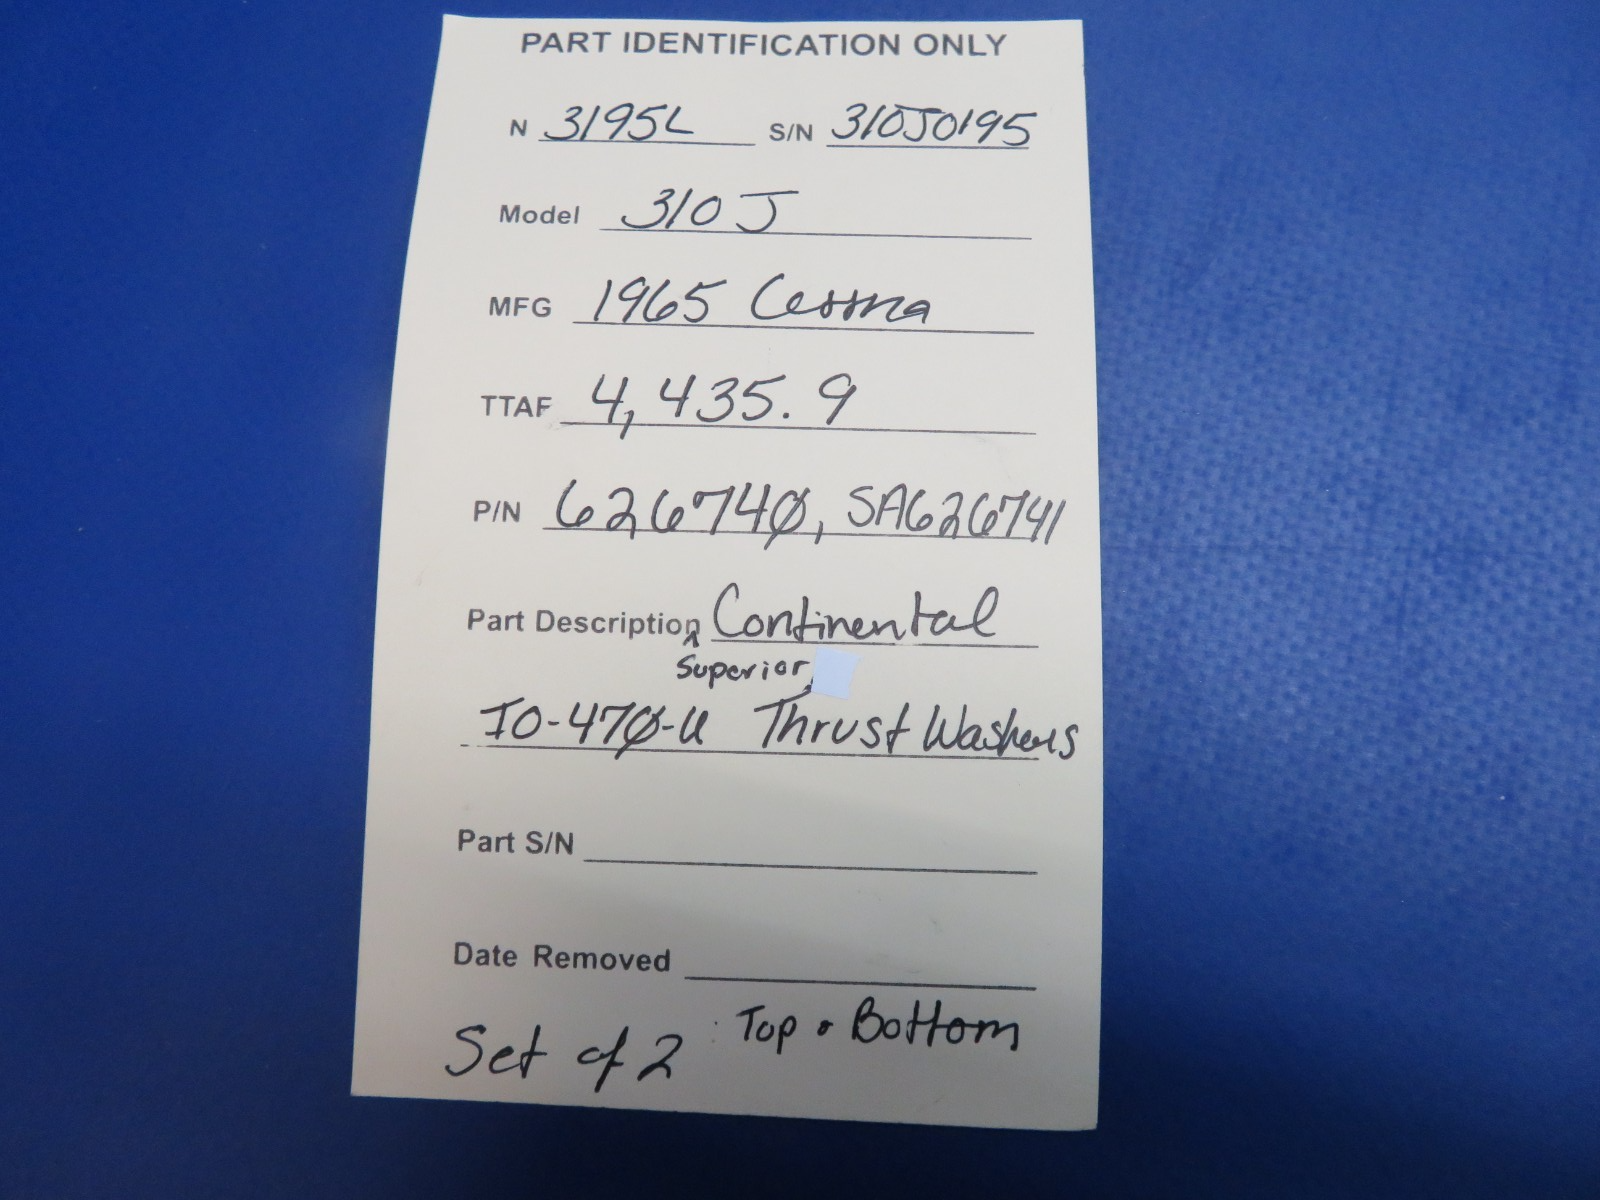 PART IDENTIFICATION ONLY
N 3195L S/N 310J0195
Model 310 J
MFG 1965 Cessna
TTAF 4,435.9
P/N 626740, SA626741
Part Description Continental
^ Superior,
IO-470-U Thrust Washers
Part S/N
Date Removed
Top & Bottom
Set of 2